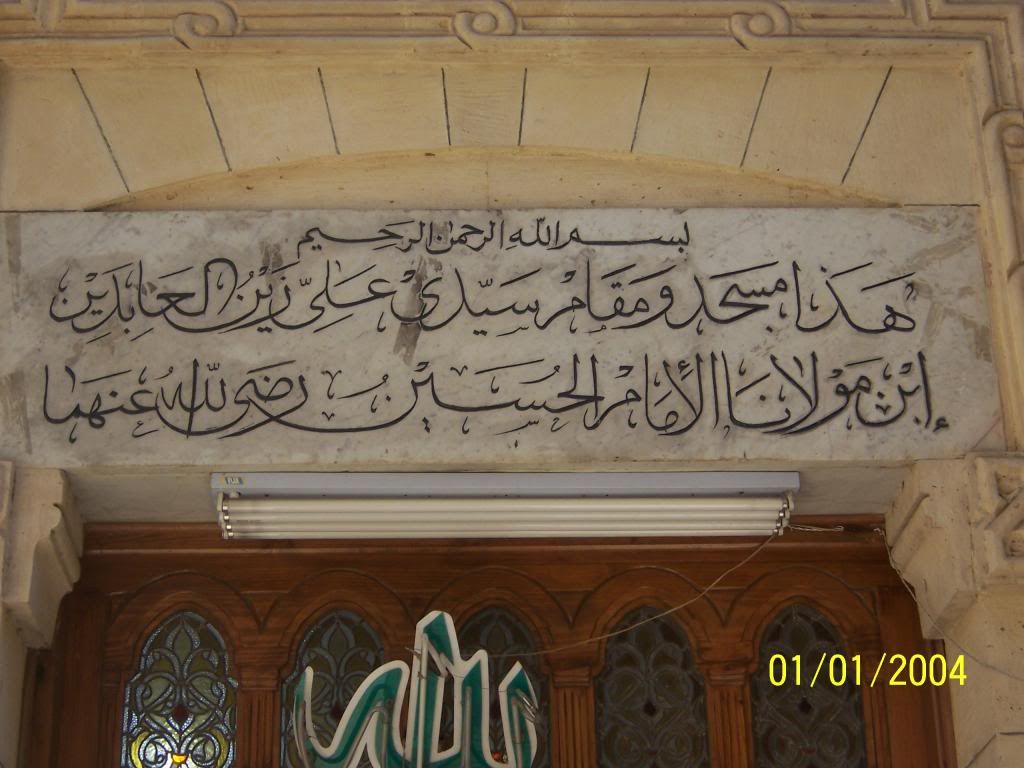 بسم الله الرحمن الرحيم
هَذَا مَسْجَد وَمَقَامْ سَيِّدِىْ عَلِىّ زَيْنُ العَابِدَيْن
إبْن مَوْلَانَا الإمَامْ الحُسَيْن رضَى اللهُ عَنهمَا
الله
01/01/2004